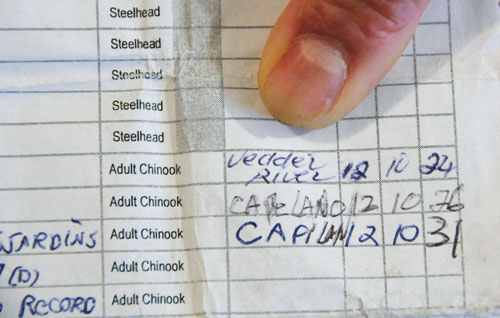 Steelhead
Steelhead
Steelhead
Steelhead
Steelhead
Adult Chinook Vedder River 12 10 24
Adult Chinook CAPELANO 12 10 26
JARDINS Adult Chinook CAPILAN 12 10 31
(D) Adult Chinook
RECORD Adult Chinook